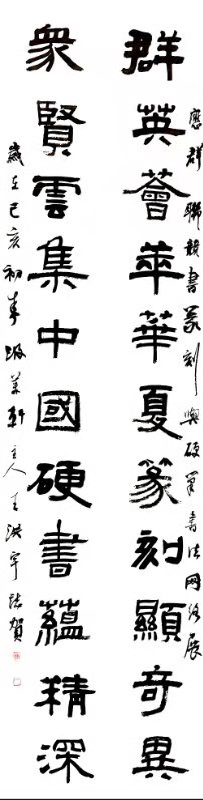 群英薈萃華夏篆刻顯奇異
應群聯書篆刻與硬筆書法网络展
衆賢雲集中國硬書蘊精深
歲在己亥初春軒主人王洪宇誌賀